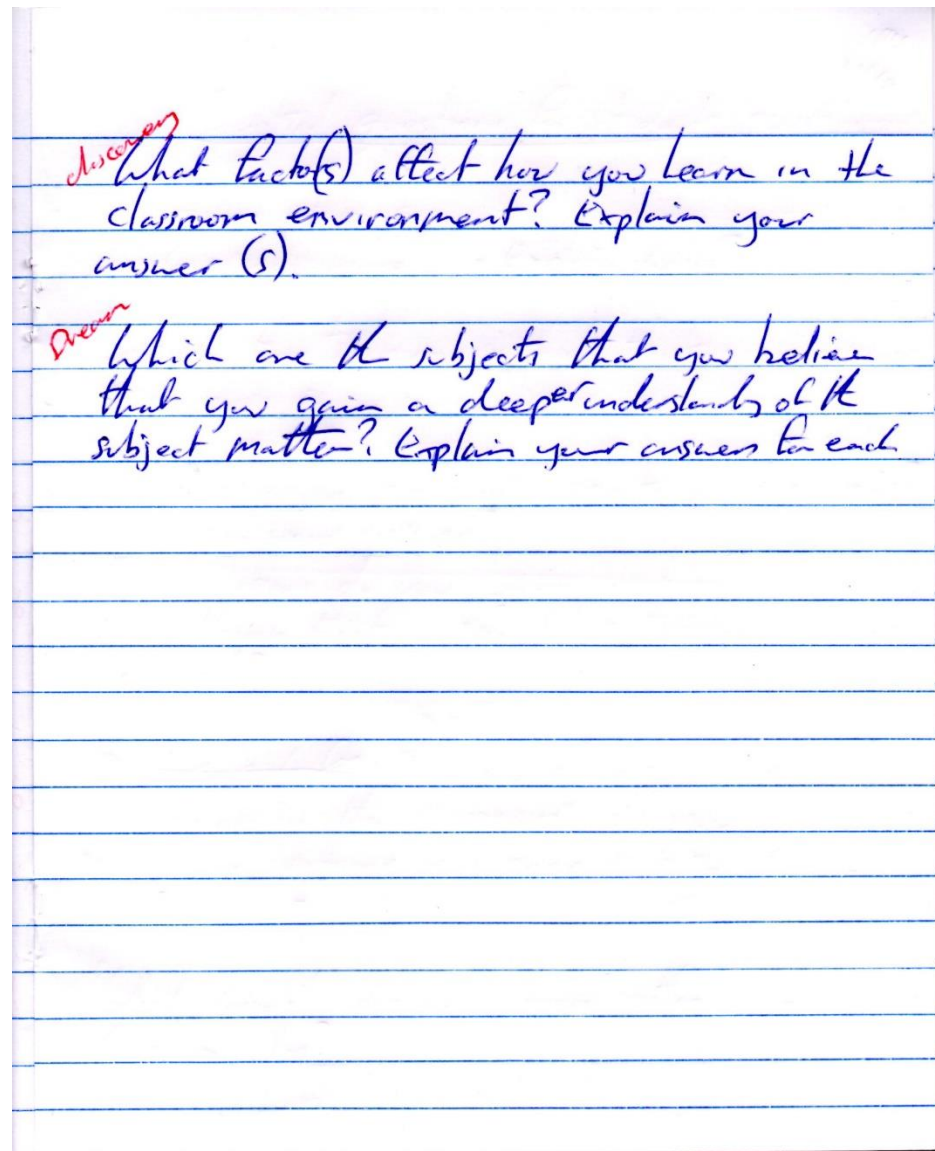 discovery
What factor(s) affect how you learn in the
classroom environment? Explain your
answer (s).
Dream
Which are the subjects that you believe
that you gain a deeper understanding of the
subject matter? Explain your answers for each